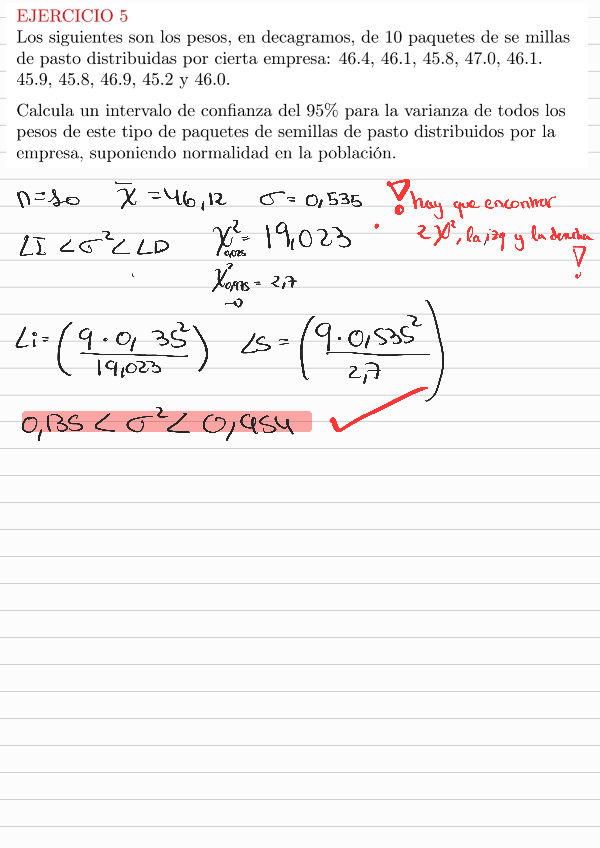 EJERCICIO 5
Los siguientes son los pesos, en decagramos, de 10 paquetes de se millas
de pasto distribuidas por cierta empresa: 46.4, 46.1, 45.8, 47.0, 46.1.
45.9, 45.8, 46.9, 45.2 y 46.0.
Calcula un intervalo de confianza del 95% para la varianza de todos los
pesos de este tipo de paquetes de semillas de pasto distribuidos por la
empresa, suponiendo normalidad en la población.
n=10 x̄ = 46,12 σ = 0,535
hay que encontrar
2 χ², la izq y la derecha
LI < σ² < LD χ²0,025 = 19,023
χ²0,975 = 2,7
Li = (9 · 0, 35² / 19,023) LS = (9 · 0,535² / 2,7)
0,135 < σ² < 0,954